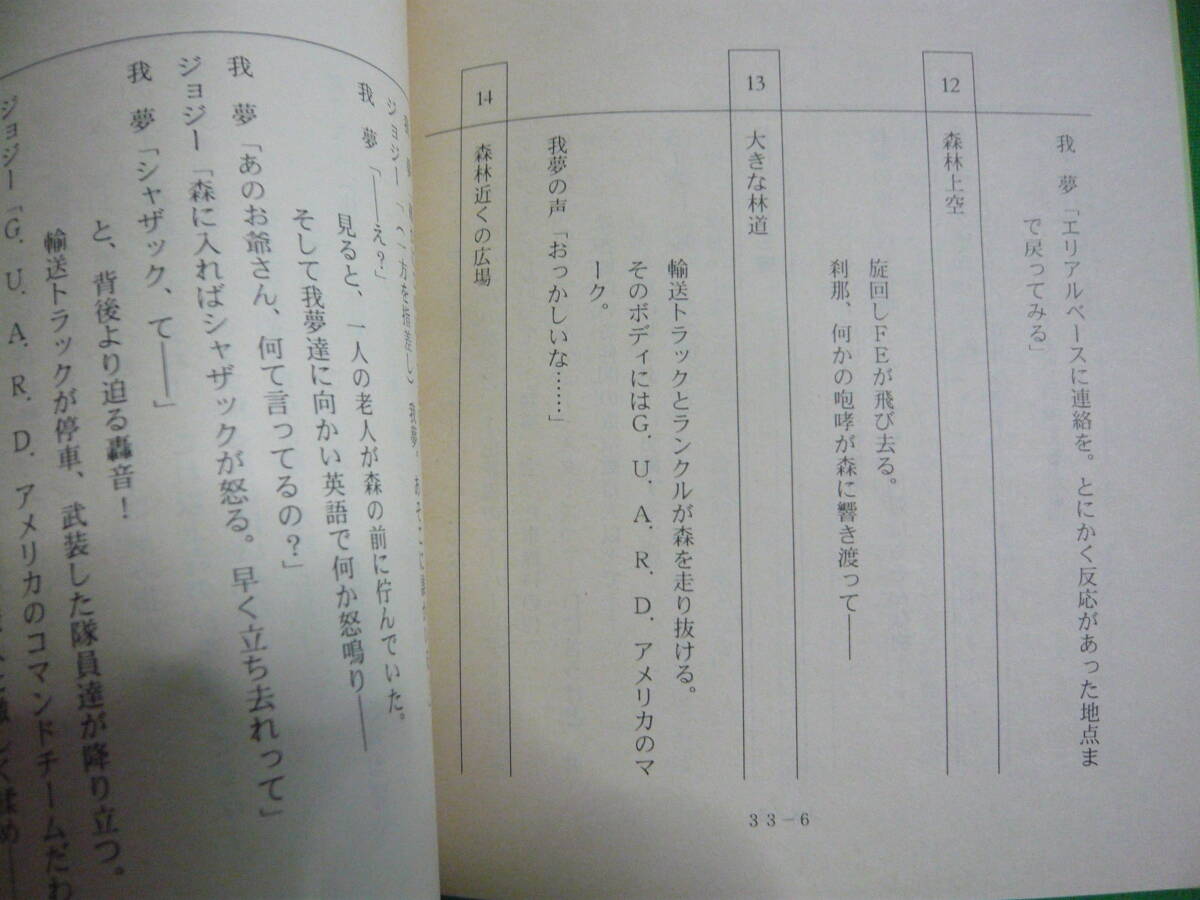 我　夢「エリアルベースに連絡を。とにかく反応があった地点ま
で戻ってみる」
12　森林上空
旋回しFEが飛び去る。
刹那、何かの咆哮が森に響き渡って――
13　大きな林道
輸送トラックとランクルが森を走り抜ける。
そのボディにはG.U.A.R.D.アメリカのマ
ーク。
我夢の声「おっかしいな……」
14　森林近くの広場
33-6
ジョジー「（一方を指差し）我夢、
我　夢「――え？」
見ると、一人の老人が森の前に佇んでいた。
そして我夢達に向かい英語で何か怒鳴り――
我　夢「あのお爺さん、何て言ってるの？」
ジョジー「森に入ればシャザックが怒る。早く立ち去れって」
我　夢「シャザック、て――」
と、背後より迫る轟音！
輸送トラックが停車、武装した隊員達が降り立つ。
ジョジー「G.U.A.R.D.アメリカのコマンドチームだわ